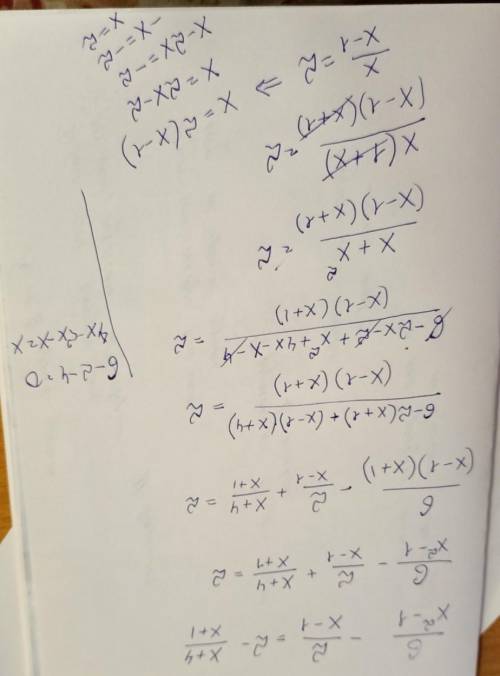 6/(x²-1) - 2/(x-1) = 2 - (x+4)/(x+1)
6/(x²-1) - 2/(x-1) + (x+4)/(x+1) = 2
6/((x-1)(x+1)) - 2/(x-1) + (x+4)/(x+1) = 2
(6-2(x+1)+(x-1)(x+4))/((x-1)(x+1)) = 2
(6-2x-2+x²+4x-x-4)/((x-1)(x+1)) = 2
6-2-4=0
4x-2x-x=x
(x+x²)/((x-1)(x+1)) = 2
x(1+x)/((x-1)(x+1)) = 2
x/(x-1) = 2 ⇒
x=2(x-1)
x=2x-2
x-2x=-2
-x=-2
x=2